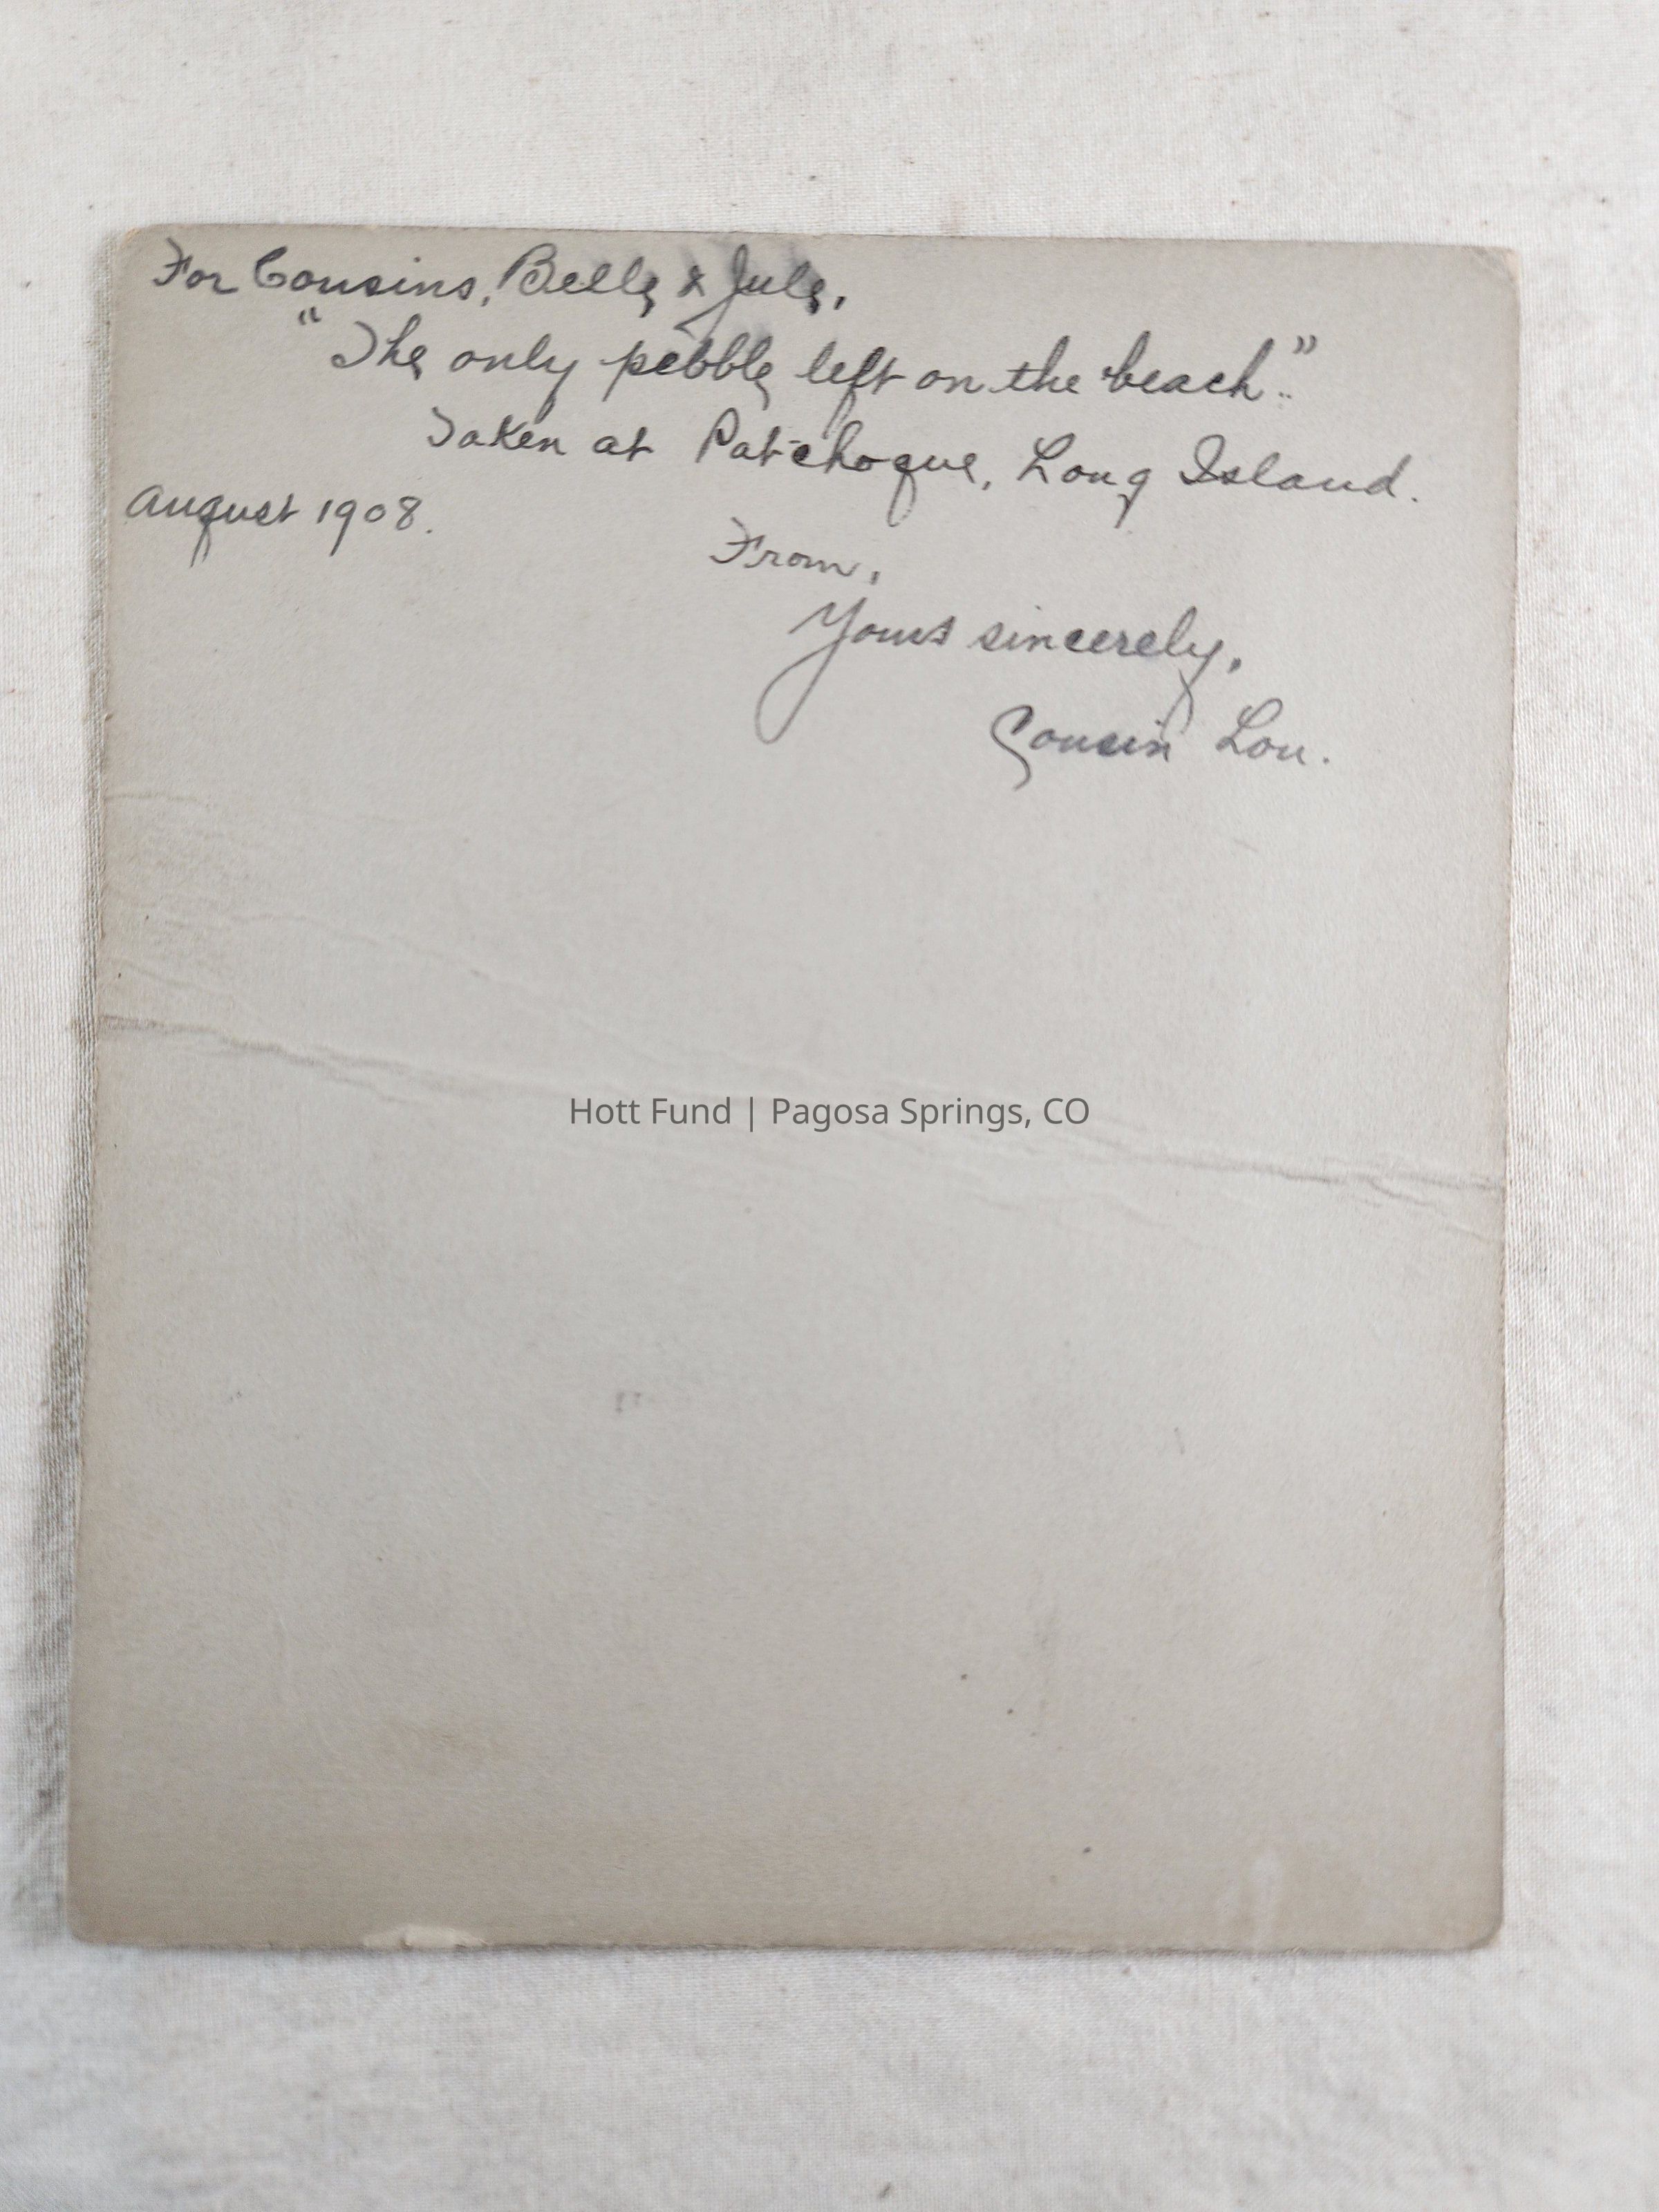 For Cousins, Belle & Jule,
"The only pebble left on the beach."
Taken at Patchogue, Long Island.
August 1908.
From,
Yours sincerely,
Cousin Lou.
Hott Fund | Pagosa Springs, CO